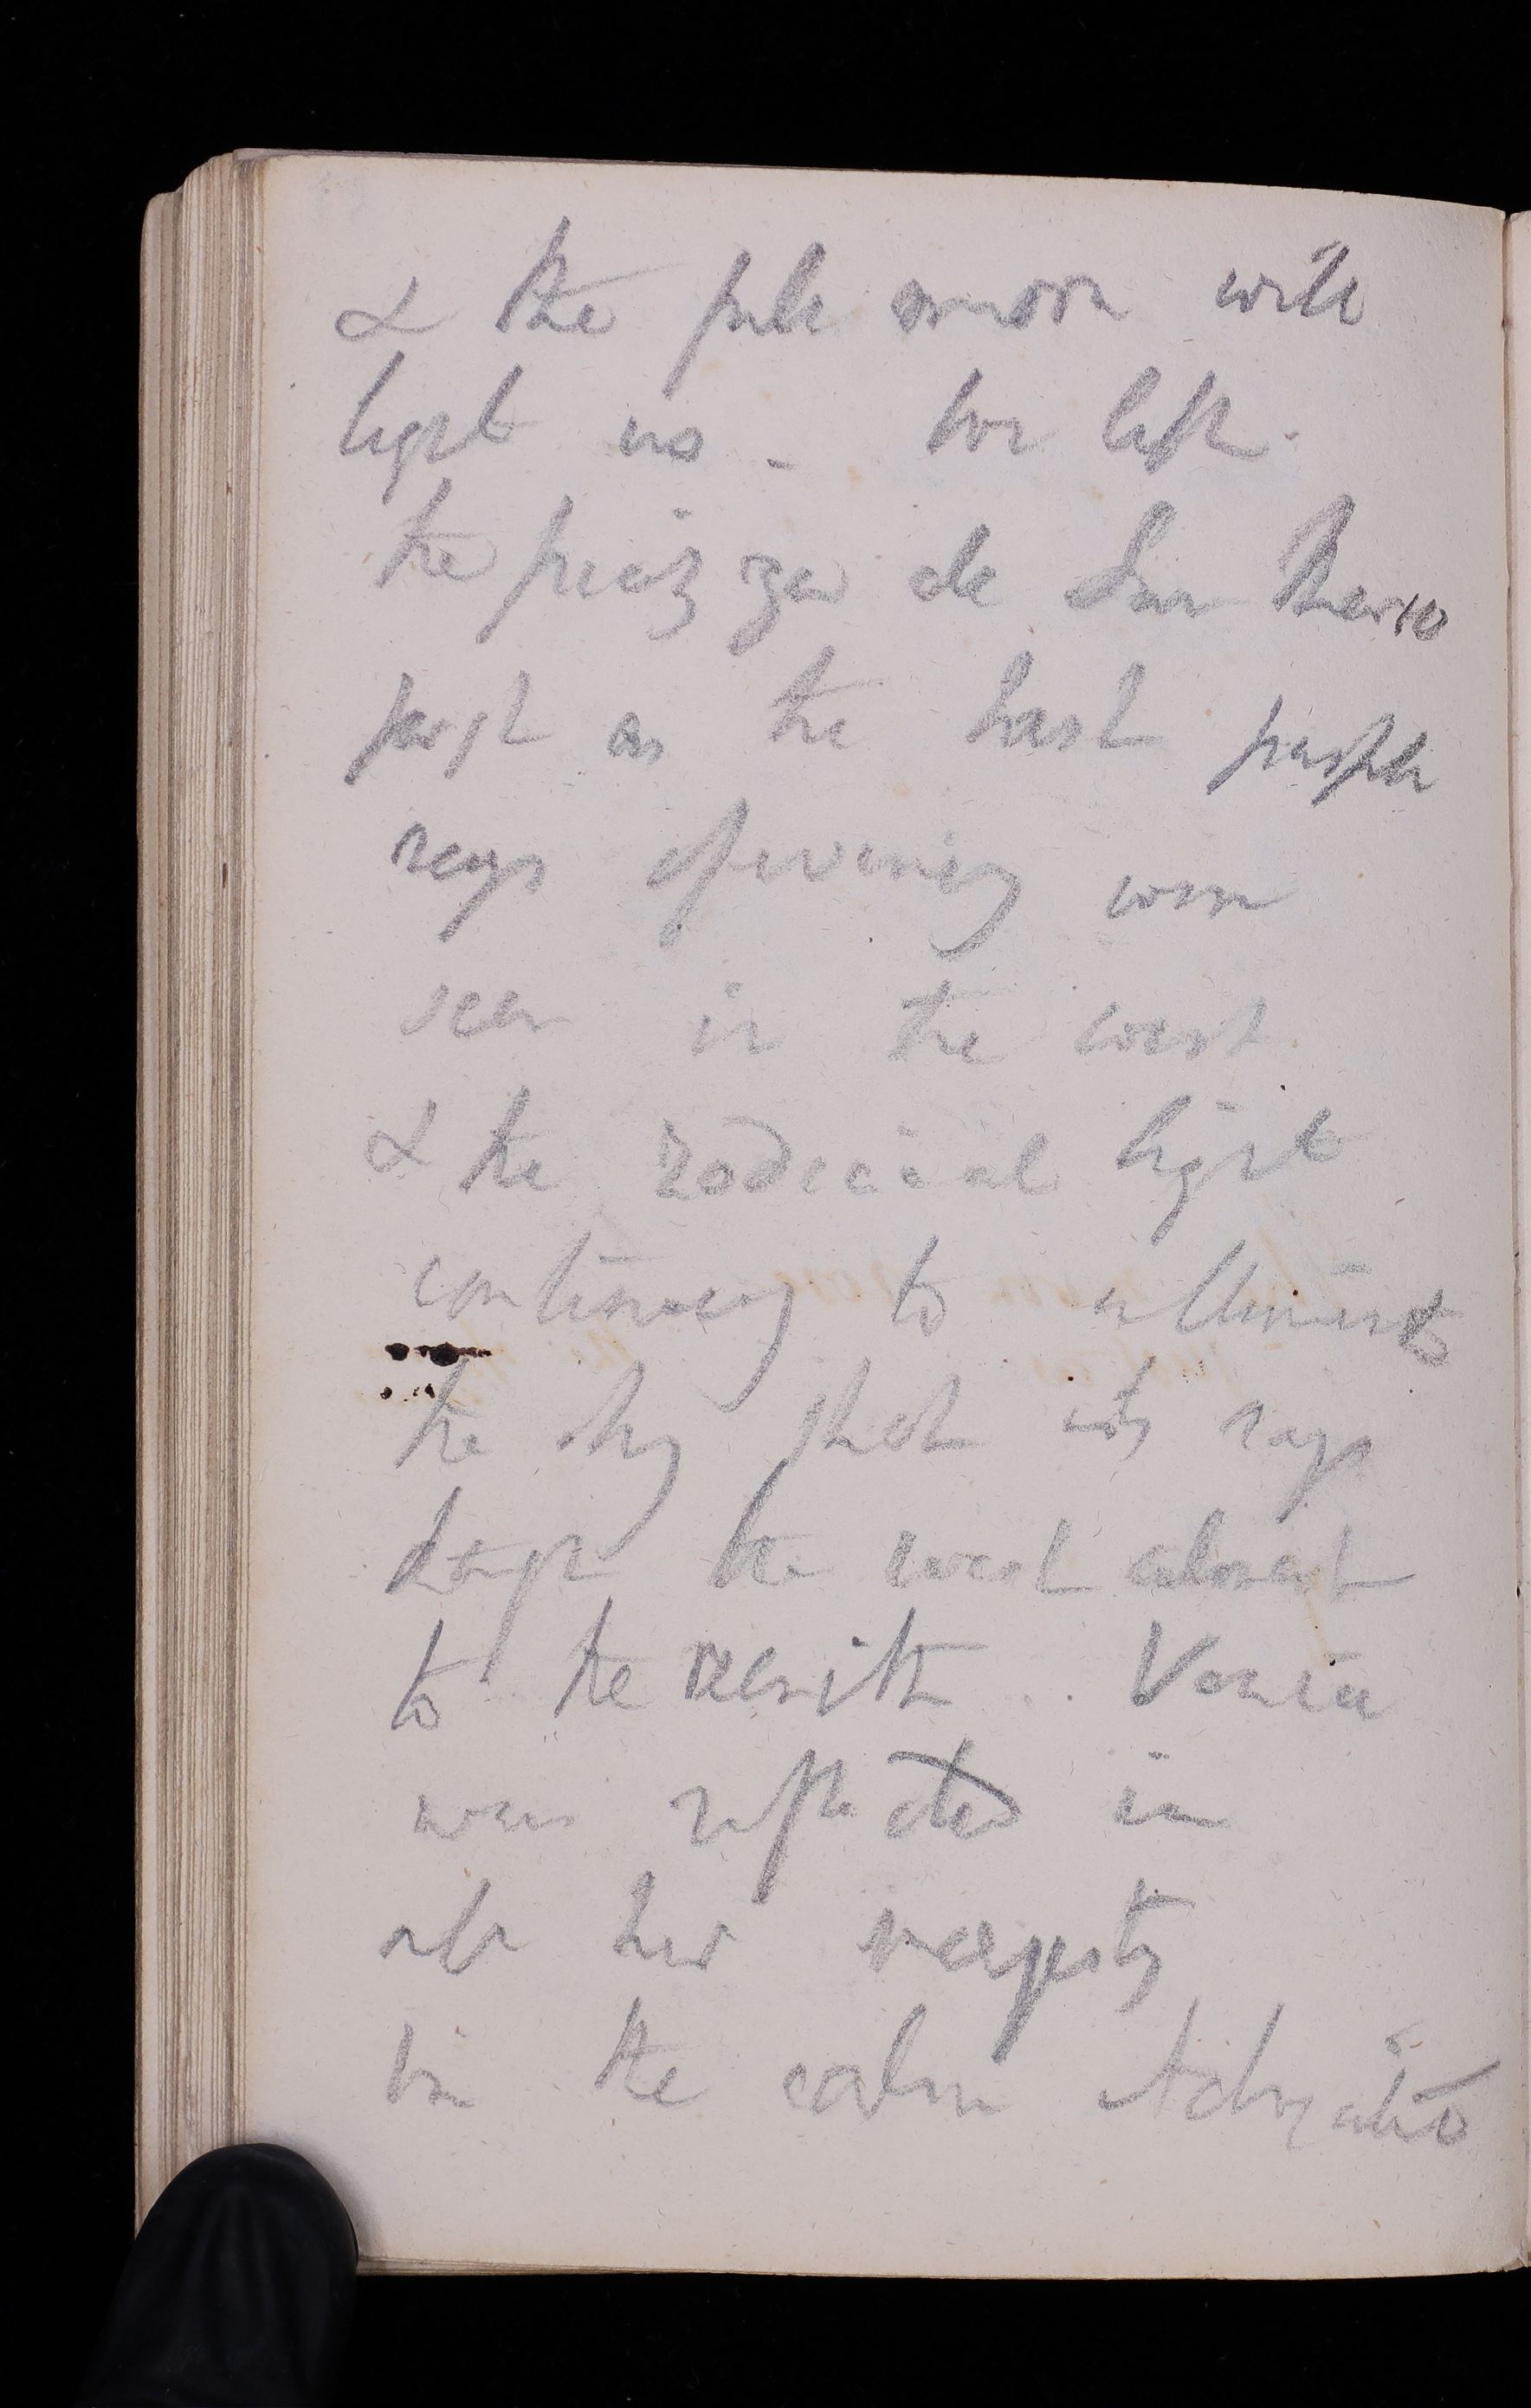 & the full moon will
light us - We left
the piazza de San Marco
just as the last purple
rays of evening were
seen in the west
& the zodiacal light
continuing to illuminate
the sky shot its rays
the west almost
to the zenith. Venice
was reflected in
all her majesty
in the calm Adriatic